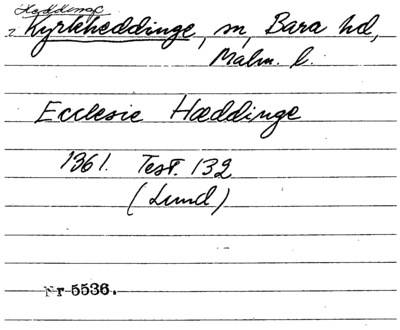 Hæddinge
? Kyrkheddinge, sn, Bara hd,
Malm. l.
Ecclesie Hæddinge
1361. Test. 132
(Lund)
Nr 5536.